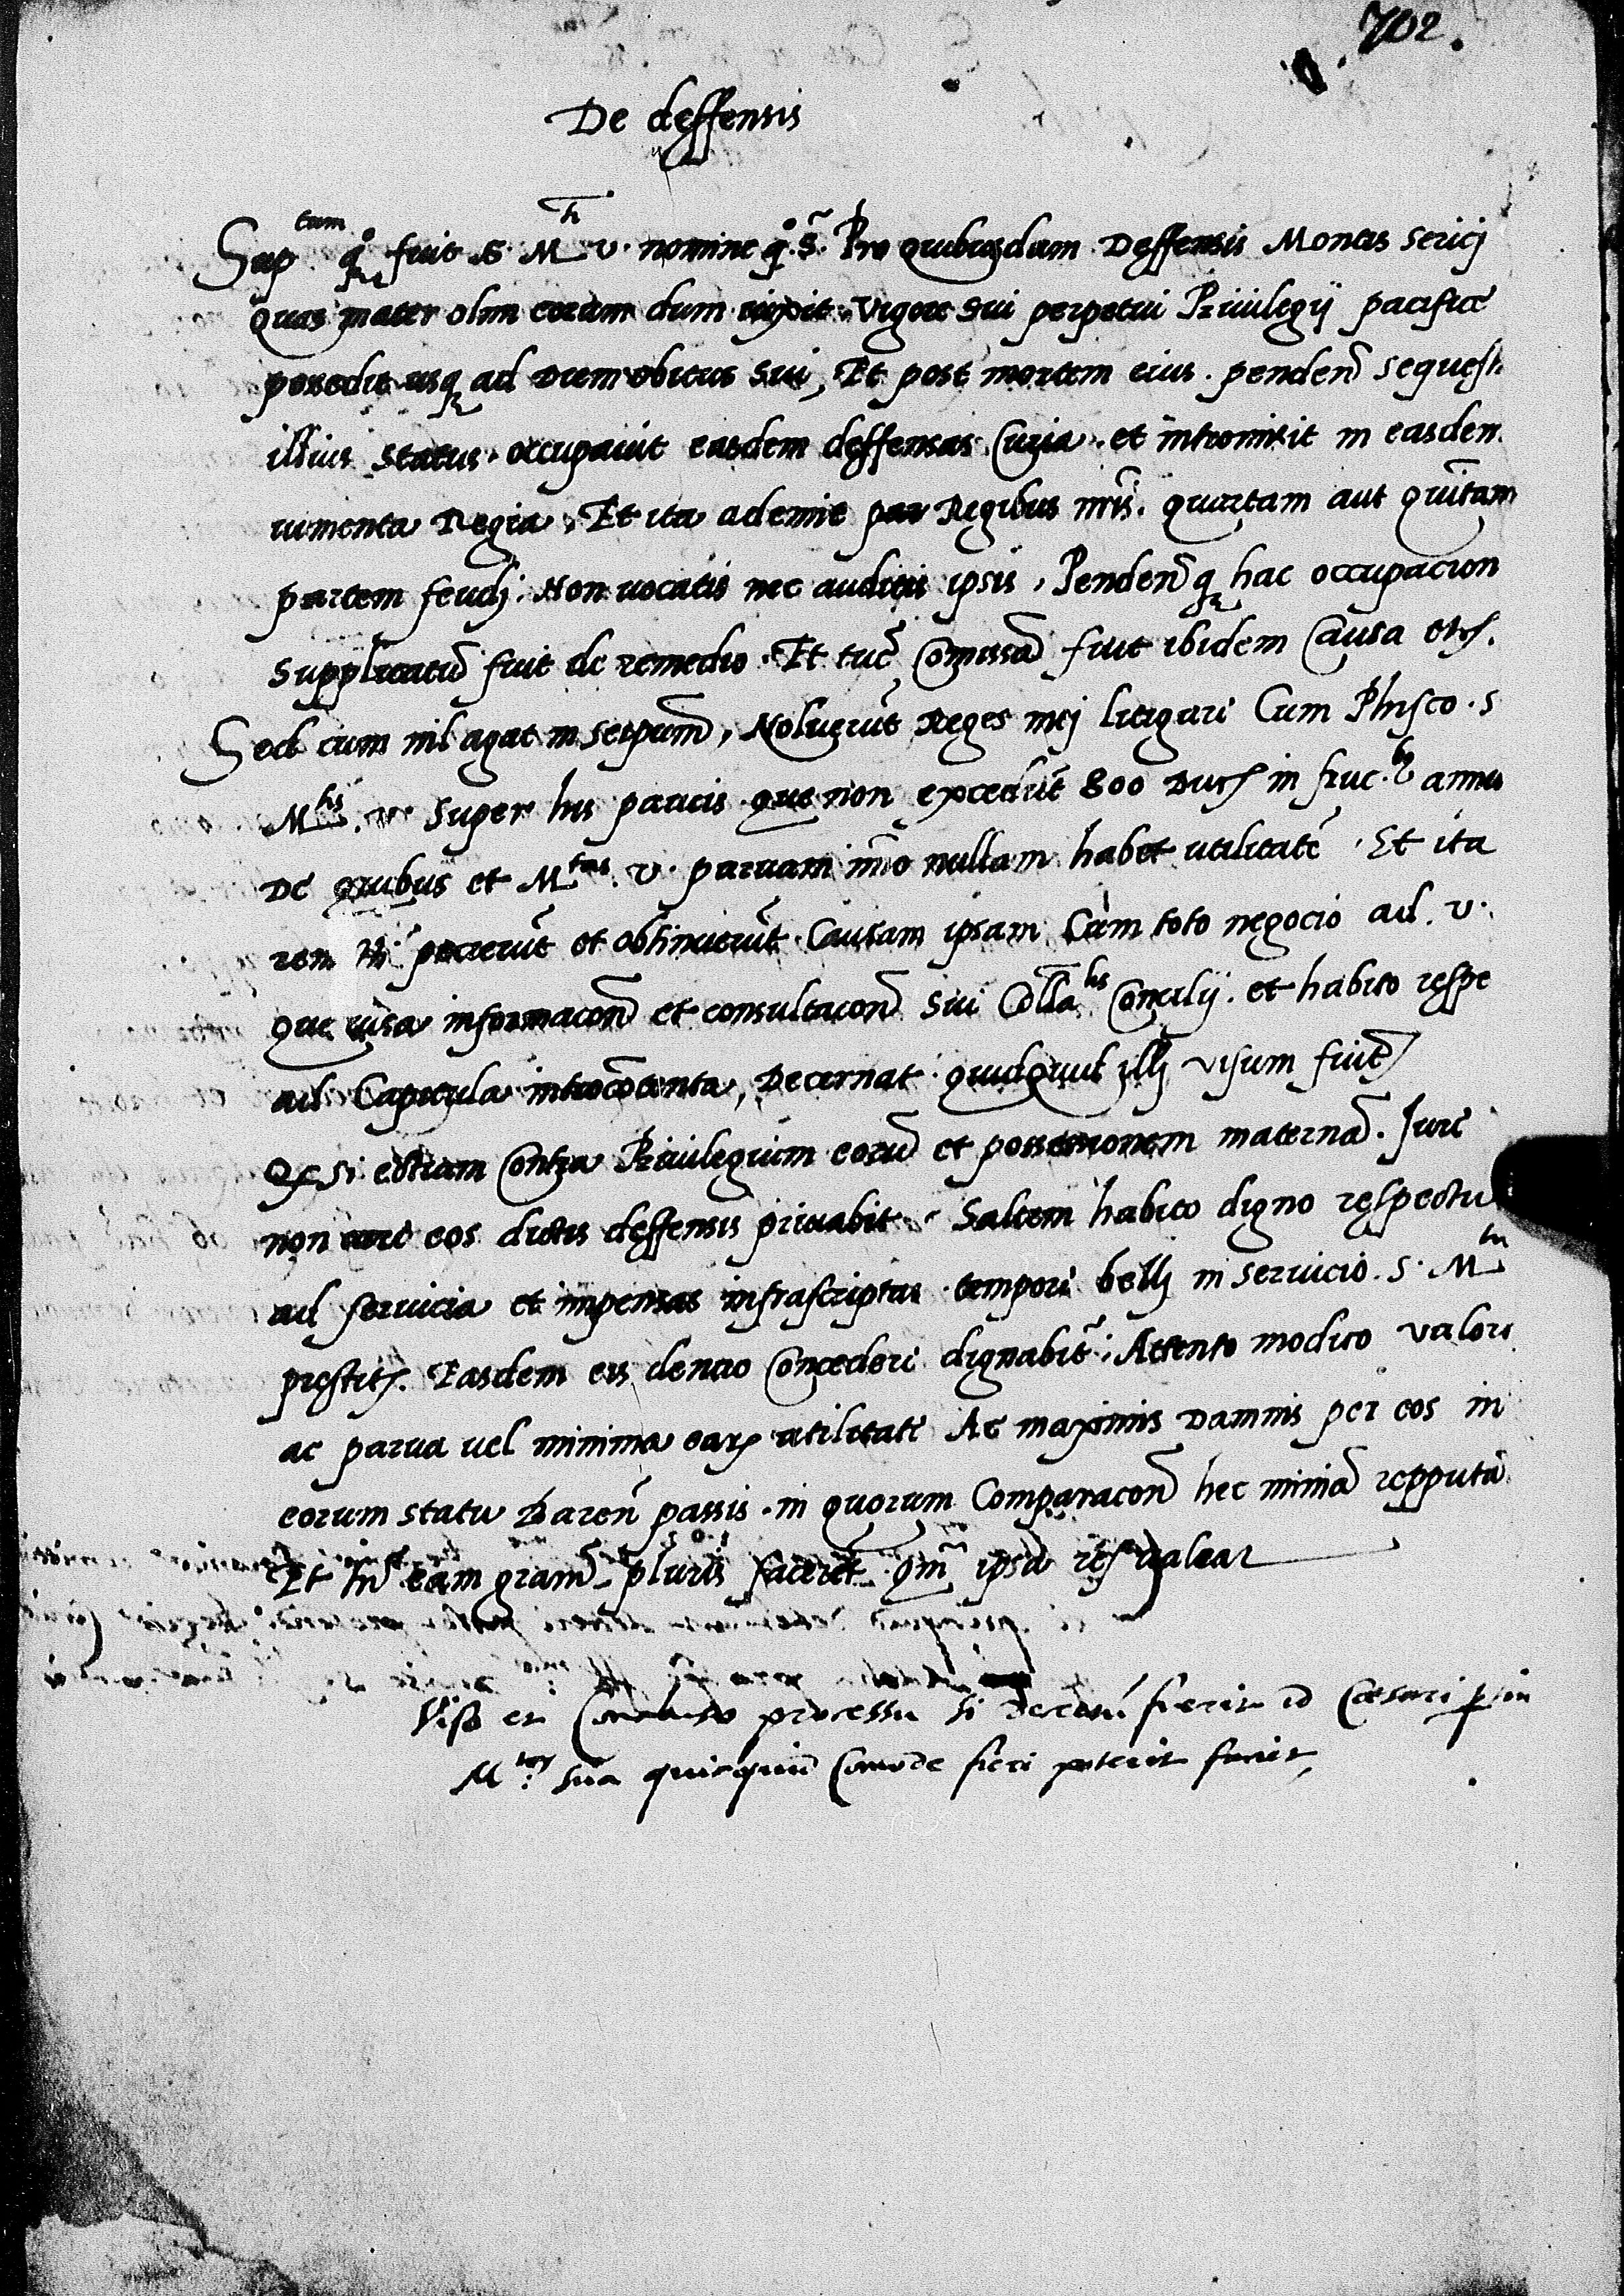 702.
De deffensis
Sup^tum q^o fuit S. M^ti v. nomine q^o. s. Pro quibusdam Deffensis Montis Sericij
quas mater olim eorum dum vixit vigore sui perpetui Priuilegij pacifice
possedit usq ad Diem obitus sui, Et post mortem eius. penden̄ sequest
illius status. occupauit easdem deffensas Curia. et intromisit in easdem
iumenta Regia, Et ita ademit par Regibus mēis. quartam aut quītam
partem feudj. Non uocatis nec auditis ipsis, Penden̄q hac occupacion
Supplicatū fuit de remedio. Et tūc Comissa fuit ibidem Causa
Sed cum nil agat in serpūm, Noluerūt Reges mej litigari Cum Phisco. s
M^tis. v. super his paucis que non excedūt 800 Duc in fruc^bus annuis
De quibus et M^tas. v. paruam īmo nullam habet utilitatē. Et ita
rem petierūt et obtinuerūt Causam ipsam Cum toto negocio ad. v.
que uisa informacon̄ et consultacon̄ sui Colla^lis Concilij. et habito respe
ad Capitula introcotenta, Decernat quidquid illj visum fuit
Q si etiam Contra Priuilegium eorū et possessionem maternā. Jure
non iure eos dictis deffensis priuabit. Saltem habito digno respectu
ad seruicia et impensas infrascriptas tempore bellj in seruicio. s. M^tis
prestit. Easdem eis denuo Concedere dignabit. Attento modico valore
ac parua uel minima ear utilitate Ac maximis Damnis per eos in
eorum statu Baren̄ passis. in quorum Comparacon̄ hec minīa repputā
Et in eam grām pluris faceret qm̄ ipsa res valeat
Viso et Concluso processu si Decretū fuerit id Cæsari
M^tas sua quicquid Comode fieri poterit faciet